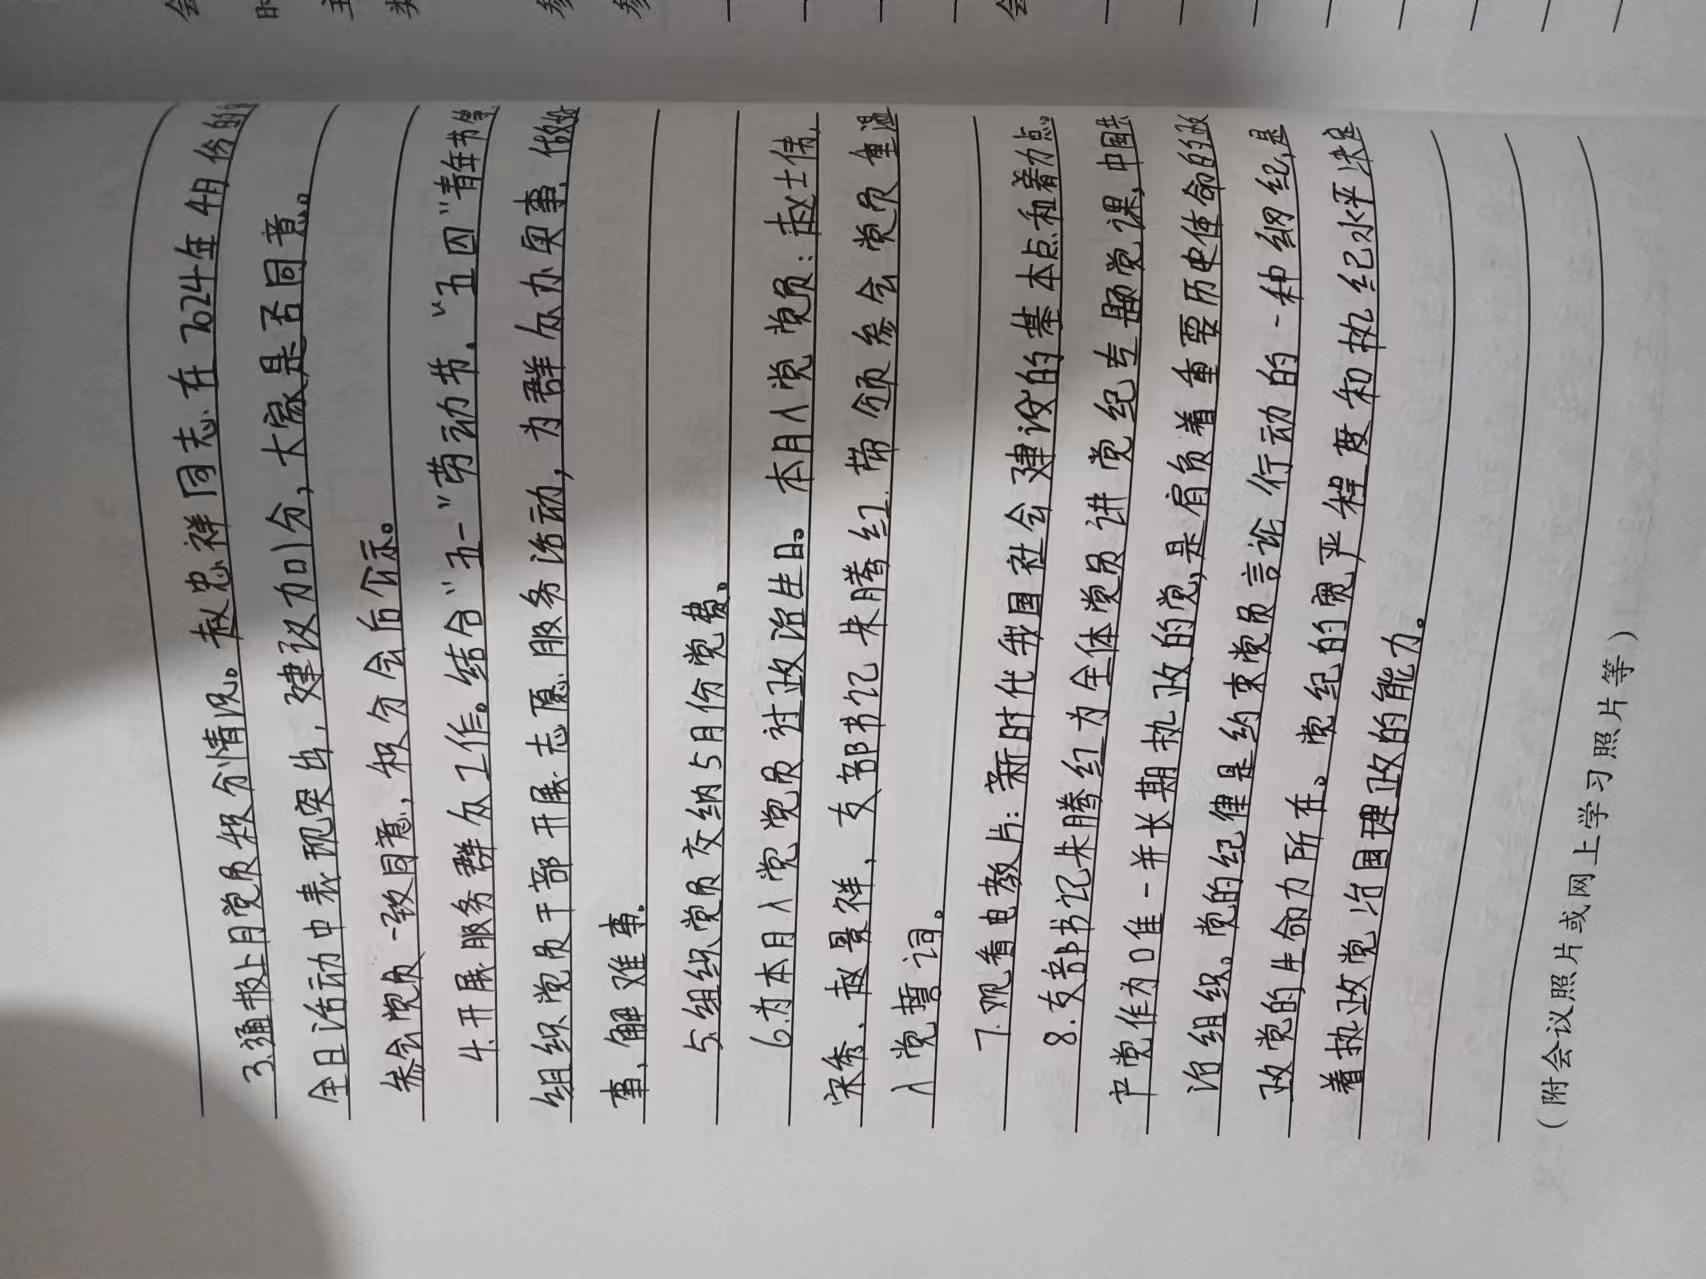 3.通报上月党员积分情况。赵忠祥同志在2024年4月份的
全日活动中表现突出，建议加1分，大家是否同意。
参会党员一致同意，积分会后公示。
4.开展服务群众工作。结合“五一”劳动节、“五四”青年节等
组织党员干部开展志愿服务活动，为群众办实事、做好
事、解难事。
5.组织党员交纳5月份党费。
6.为本月入党党员过政治生日。本月入党党员：赵士伟、
宋秀、赵景祥，支部书记朱腾红带领参会党员重温
入党誓词。
7.观看电教片：新时代我国社会建设的基本点和着力点。
8.支部书记朱腾红为全体党员讲党纪专题党课，中国共
产党作为唯一并长期执政的党，是肩负着重要历史使命的政
治组织。党的纪律是约束党员言论行动的一种纲纪，是
政党的生命力所在。党纪的宽严程度和执纪水平决定
着执政党治国理政的能力。
（附会议照片或网上学习照片等）